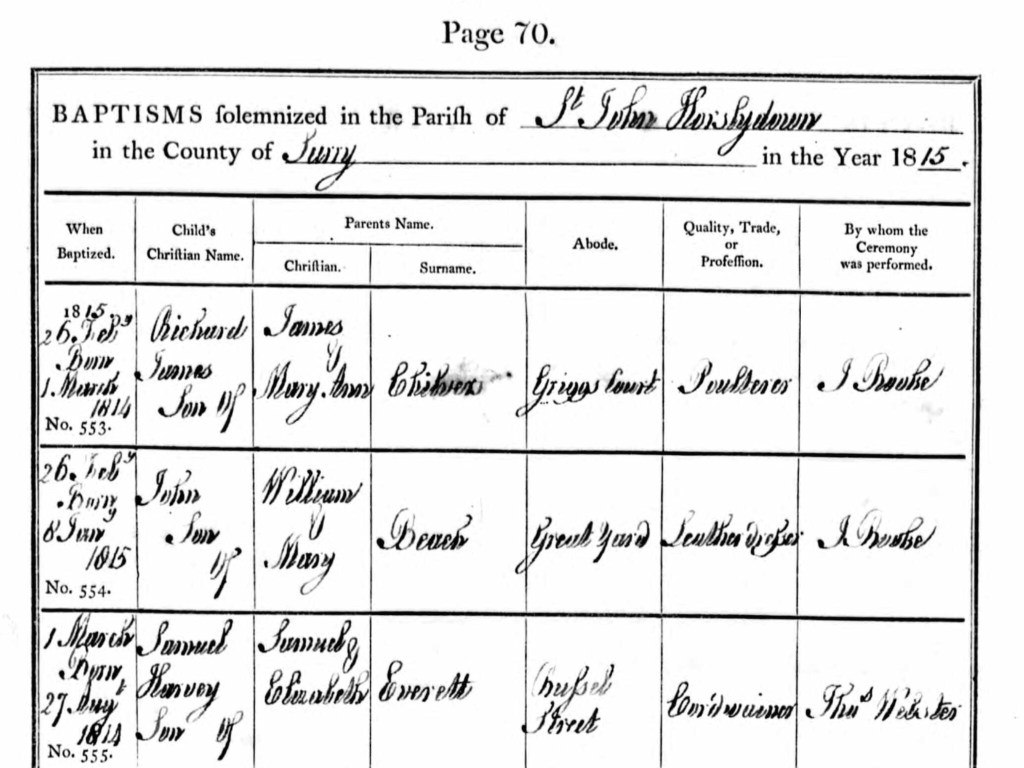 Page 70.
BAPTISMS solemnized in the Parish of St John Horslydown
in the County of Surry in the Year 1815.
When Baptized.
Child's Christian Name.
Parents Name.
Christian.
Surname.
Abode.
Quality, Trade, or Profession.
By whom the Ceremony was performed.
1815.
26. Feby
Born
1 March
1814
No. 553.
Richard
James
Son Of
James
&
Mary Ann
Chilver
Griggs Court
Poulterer
I Rooke
26. Feby
Born
8 Jany
1815
No. 554.
John
Son
Of
William
&
Mary
Beach
Great Yard
Leather dresser
I Rooke
1 March
Born
27 Augt
1814
No. 555.
Samuel
Harvey
Son Of
Samuel &
Elizabeth
Everett
Street
Cordwainer
Thos Webster